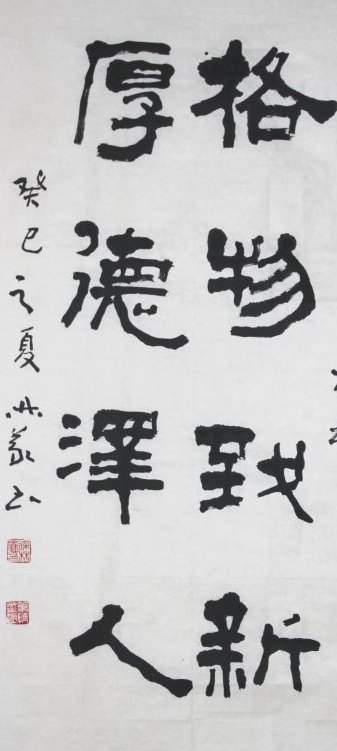 格物致新
厚德澤人
癸巳之夏